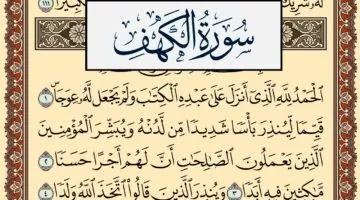 سُورَةُ الْكَهْفِ
الْحَمْدُ لِلَّهِ الَّذِي أَنزَلَ عَلَىٰ عَبْدِهِ الْكِتَٰبَ وَلَمْ يَجْعَل لَّهُ عِوَجَا ۜ ١
قَيِّمًا لِّيُنذِرَ بَأْسًا شَدِيدًا مِّن لَّدُنْهُ وَيُبَشِّرَ الْمُؤْمِنِينَ
الَّذِينَ يَعْمَلُونَ الصَّٰلِحَٰتِ أَنَّ لَهُمْ أَجْرًا حَسَنًا ٢
مَّٰكِثِينَ فِيهِ أَبَدًا ٣ وَيُنذِرَ الَّذِينَ قَالُوا اتَّخَذَ اللَّهُ وَلَدًا ٤